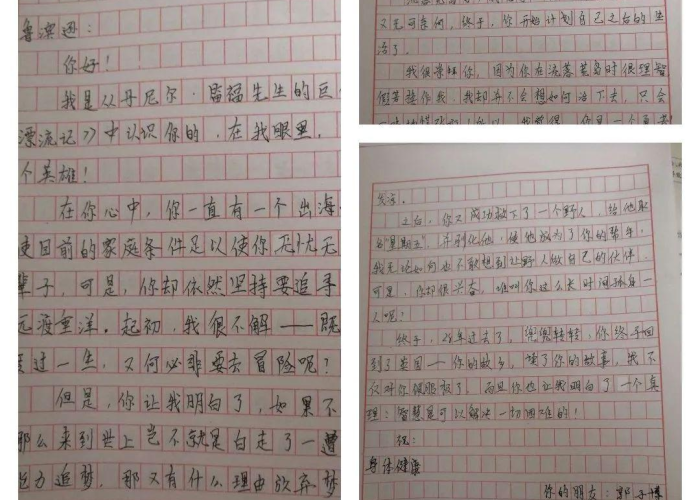 鲁滨逊：
你好！
我是从丹尼尔·笛福先生的巨
漂流记》中认识你的，在我眼里，
个英雄！
在你心中，你一直有一个出海
使目前的家庭条件足以使你无忧无
辈子，可是，你却依然坚持要追寻
远渡重洋。起初，我很不解——既
度过一生，又何必非要去冒险呢？
但是，你让我明白了，如果不
那么来到世上岂不就是白走了一遭
能力追梦，那又有什么理由放弃梦
又无可奈何，终于，你开始计划自己之后的生
活了。
我很崇拜你，因为你在流落荒岛时很理智
假若换作我，我却并不会想如何活下去，只会
之后，你又成功救下了一个野人，给他取
名"星期五"，并引化他，使他成为了你的帮手，
我无论如何也不敢想到让野人做自己的伙伴，
可是，你却很兴奋，谁叫你这么长时间孤身一
人呢？
终于，28年过去了，兜兜转转，你终于回
到了英国——你的故乡，读了你的故事，我不
仅对你佩服极了，而且你也让我明白了一个真
理：智慧是可以解决一切困难的！
祝：
身体健康
你的朋友：郭子